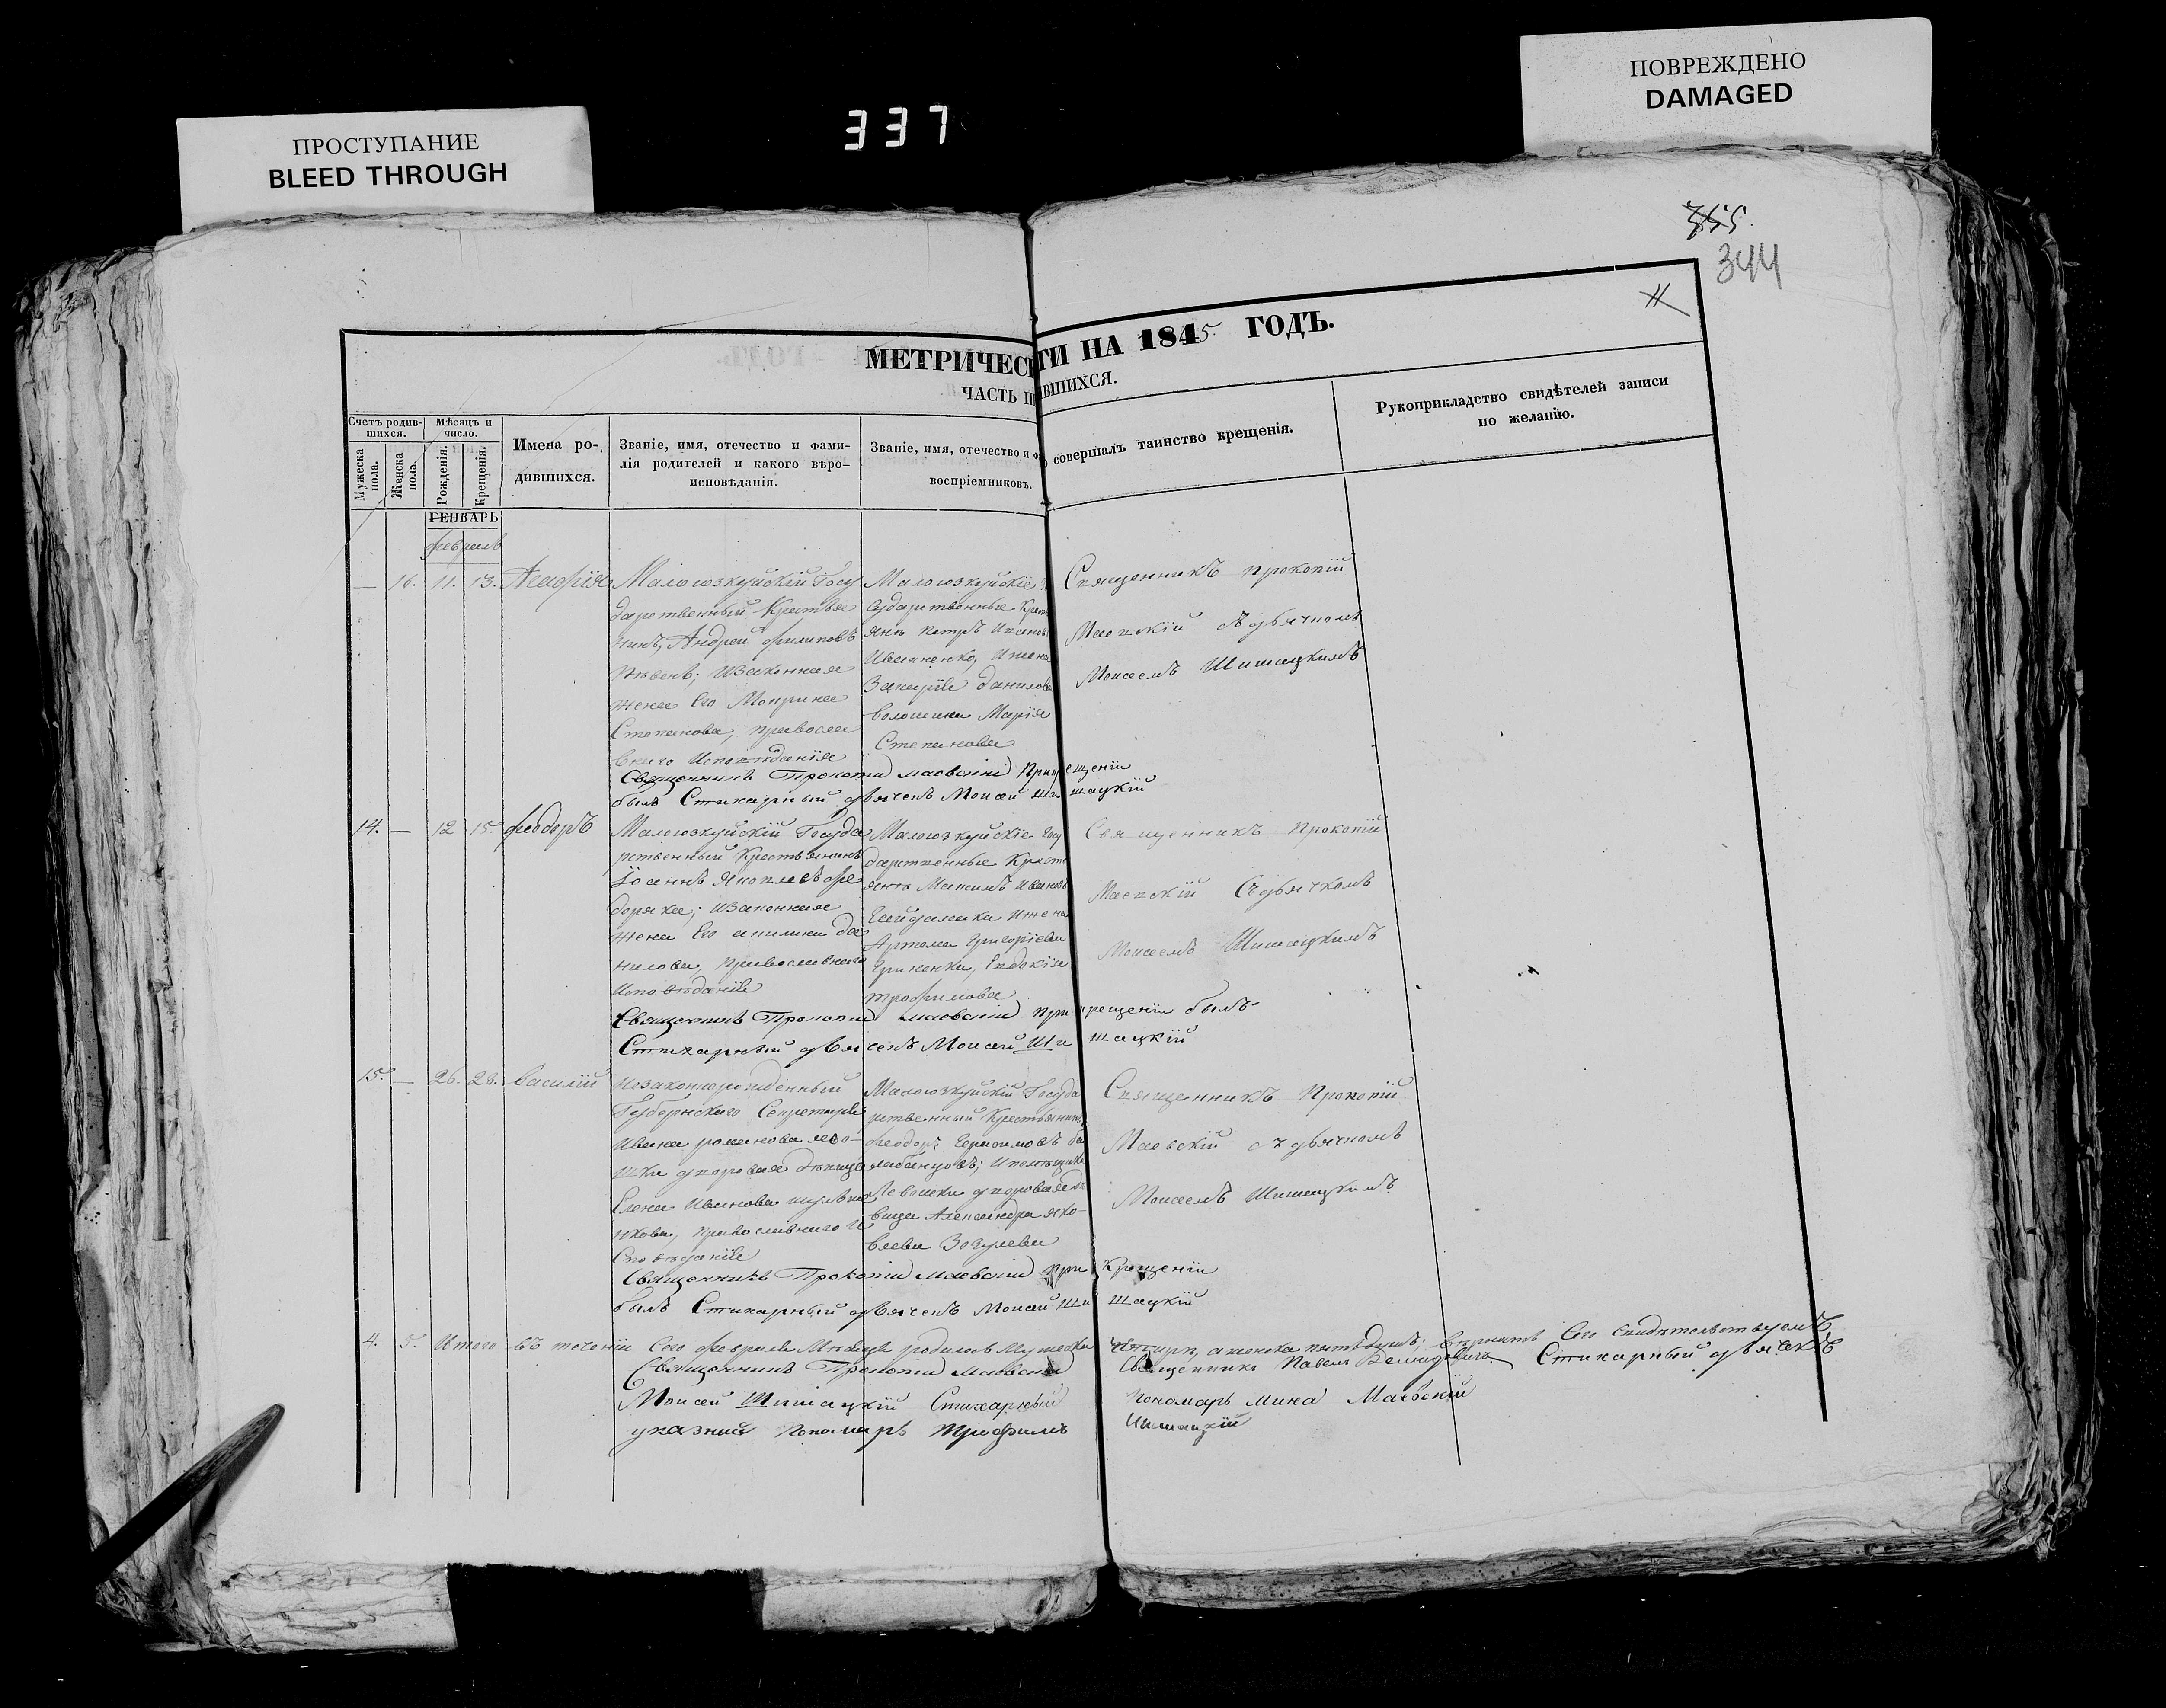 ПРОСТУПАНИЕ
BLEED THROUGH
337
ПОВРЕЖДЕНО
DAMAGED
344
МЕТРИЧЕСК
ТИ НА 1845 ГОДЪ.
ЧАСТЬ П
ВШИХСЯ.
Счетъ родив-
шихся.
Мѣсяцъ и
число.
Мужеска
пола.
Женска
пола.
Рожденія.
Крещенія.
Имена ро-
дившихся.
Званіе, имя, отечество и фами-
лія родителей и какого вѣро-
исповѣданія.
Званіе, имя, отечество и
воспріемниковъ.
совершалъ таинство крещенія.
Рукоприкладство свидѣтелей записи
по желанію.
ГЕНВАРЬ
февраль
— 16. 11. 13. Агафія
Малоюзкуйскій Госу
дарственный Крестья
нинъ, Андрей филиповъ
Изаконная
жена Его
Степанова, правосла
внаго Исповѣданія
Малоюзкуйскіе
сударственные Крест
яне петръ Иванов
Иваненко, Ижена
Захарія данилова
волошина Марія
Степанова
Священникъ прокопій
Маевскій съ дьячкомъ
Моисеемъ Шишацкимъ
Священникъ Прокопій маевскій При крещеніи
былъ Стихарный дьячекъ Моисей Шишацкій
14. — 12 15. феодоръ
Малоюзкуйскій Госуда
рственный Крестьянинъ
Іоаннъ Яковлевъ фе
доряка; Изаконная
жена Его акилина да
нилова, православнаго
Исповѣданія
Малоюзкуйскіе Госу
дарственные Крест
яне Максимъ Ивановъ
Гайдамака Ижена
Артема Григоріева
Гриненка, Евдокія
трофимова
Священникъ Прокопій
Маевскій Съ дьячкомъ
Моисеемъ Шишацкимъ
Священникъ Прокопій маевскій при крещеніи былъ
Стихарный дьячекъ Моисей Шишацкій
15. — 26. 28. василій
Незаконнорожденный
Губернскаго Секретаря
Ивана романова лево-
шки дворовая дѣвица
Елена Иванова
нкова, православнаго И
споведанія
Малоюзкуйскій Госуда
рственный Крестьянинъ
феодоръ Герасимовъ ба
лабанцовъ; Ипомѣщика
Левошки дворовая дѣ
вица Александра яко-
влева
Священникъ Прокопій
Маевскій съ дьячкомъ
Моисеемъ Шишацкимъ
Священникъ Прокопій маевскій при Крещеніи
былъ Стихарный дьячекъ Моисей Шишацкій
4. 5. Итого въ теченіи Сего февраля Мѣсяца родилось Мужеска четыре, а женска пять душъ; вѣрность Сего Свидѣтельствуемъ
Священникъ Прокопій маевскій Священникъ Павелъ Стихарный дьячекъ
Моисей Шишацкій Стихарный пономарь мина Маевскій
указный пономарь Трофимъ Шишацкій